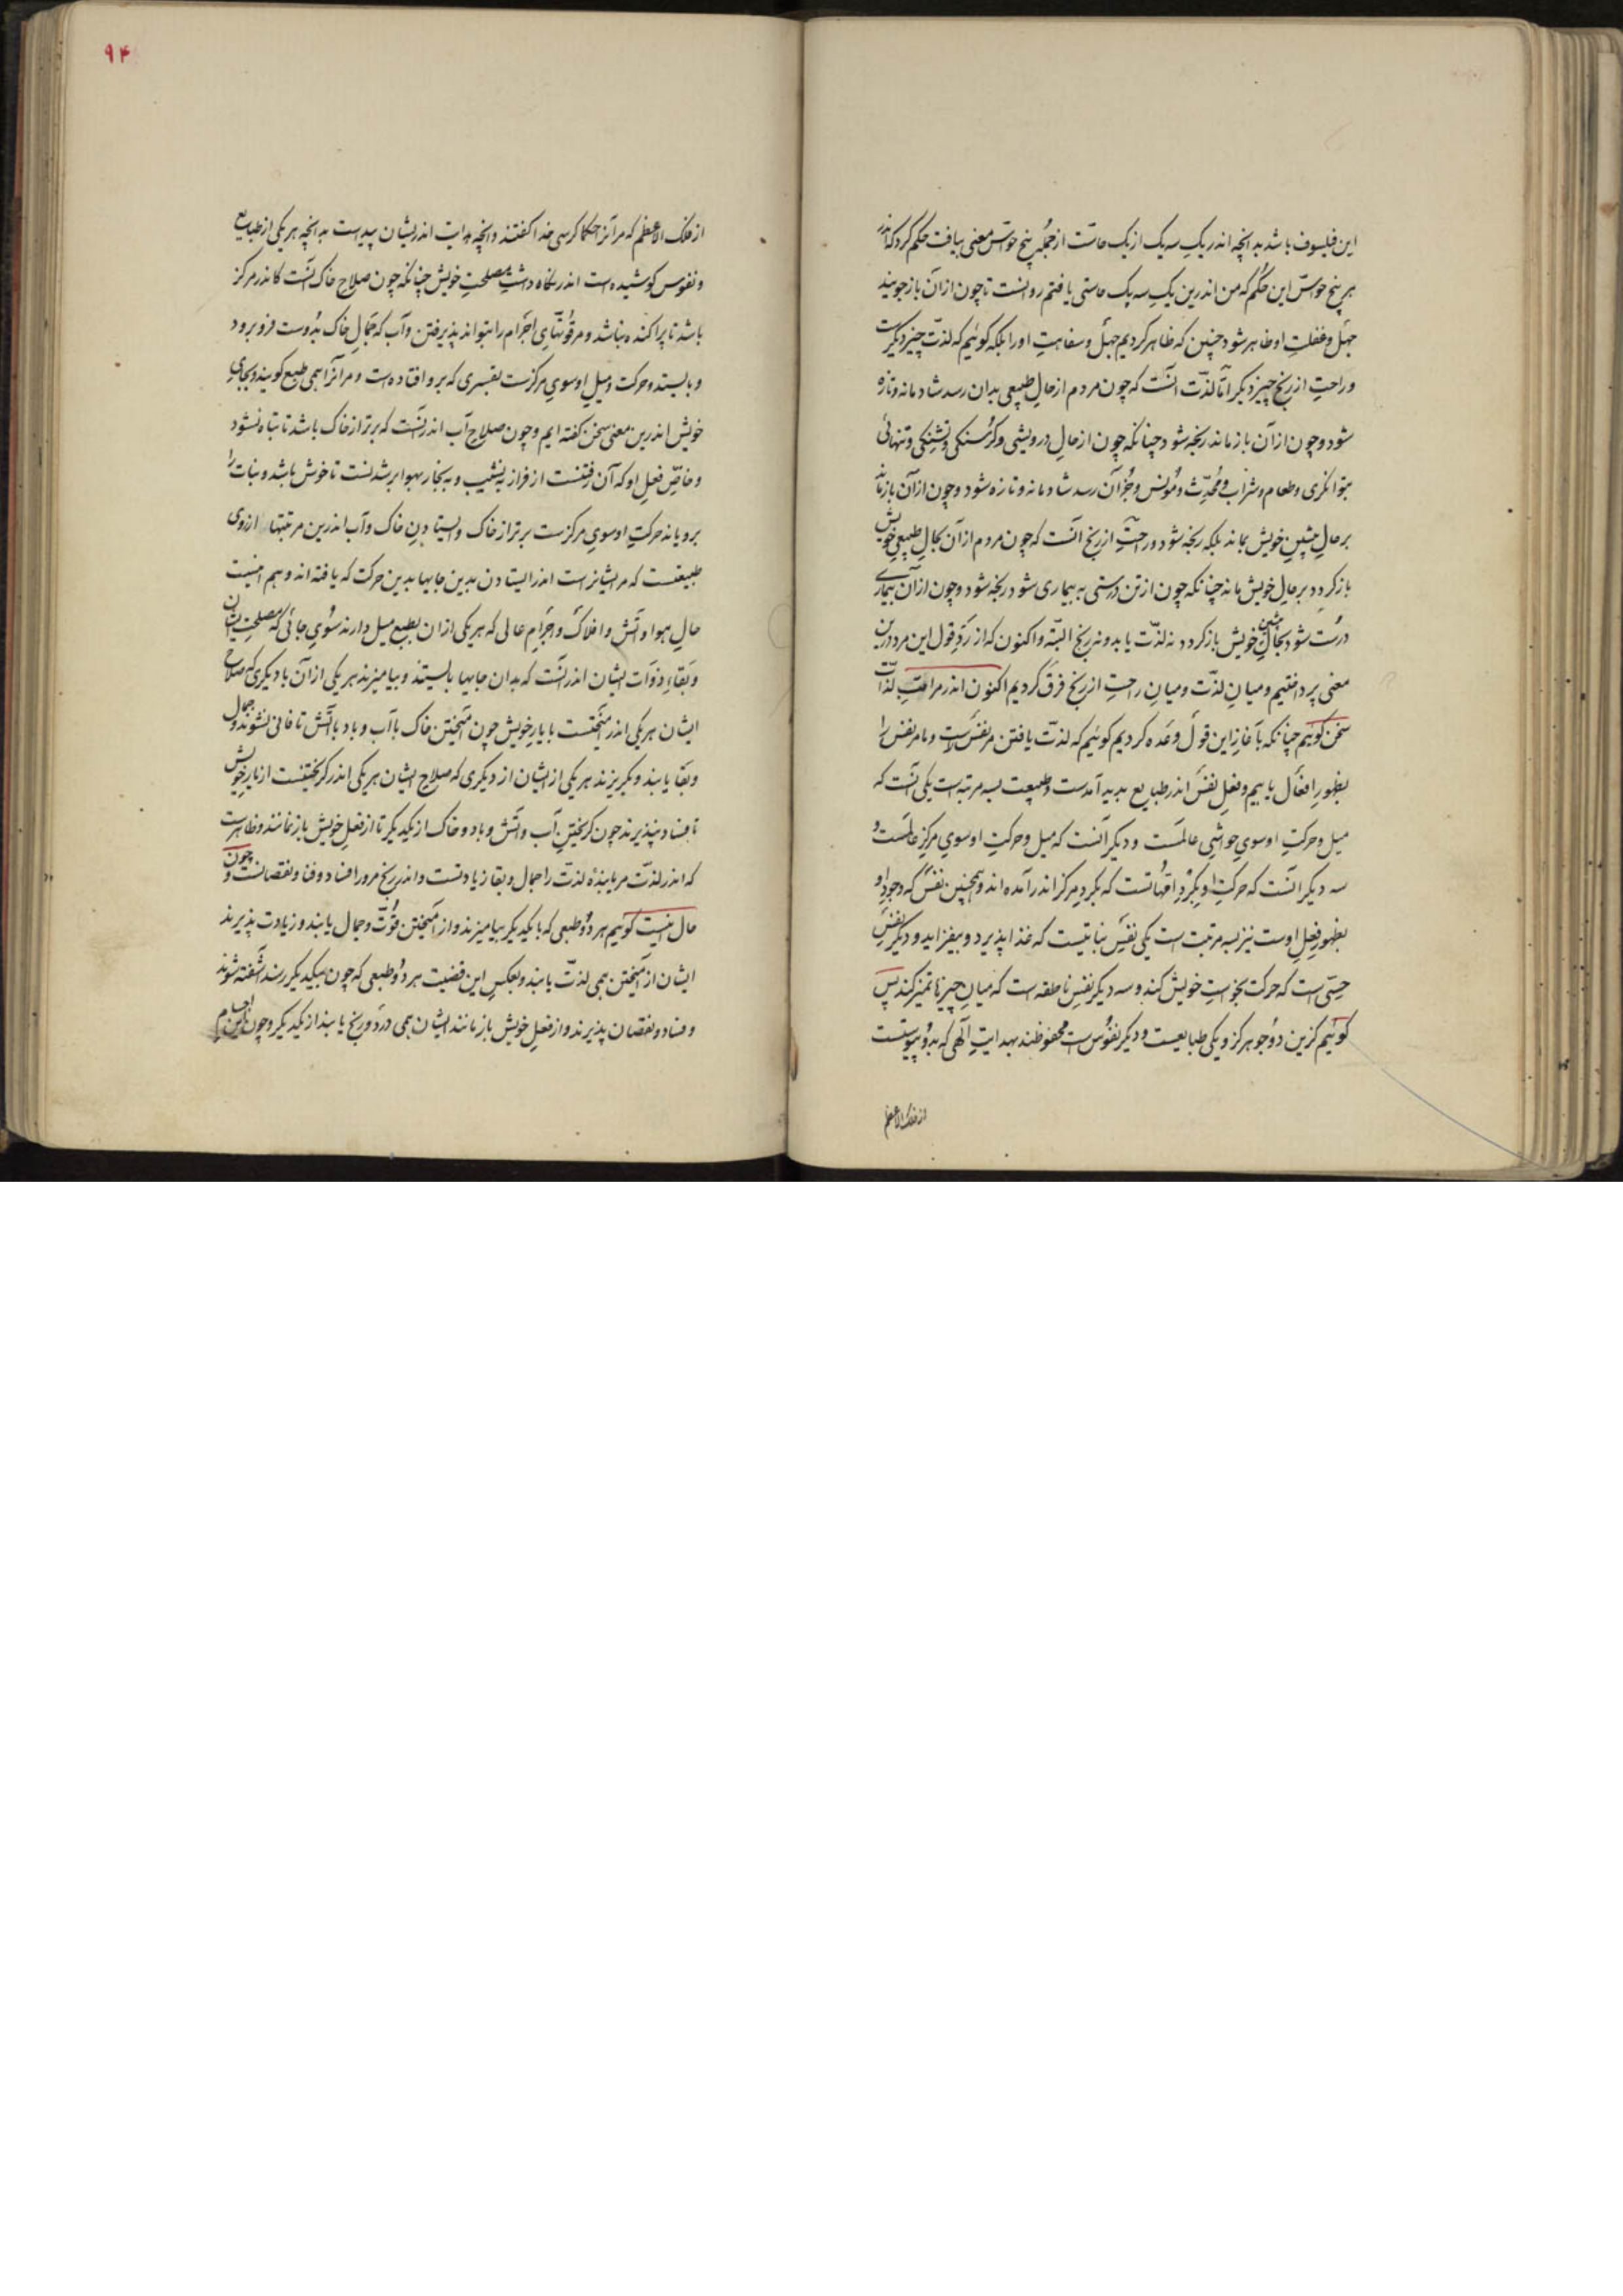 این فیلسوف باشد بدانچه اندر یک سه یک از یک حاست از جمله پنج حواس معنی بیافت حکم کرد که اندر
هر پنج حواس این حکم که من اندرین یک سه یک حاستی یافتم روانست تا چون از آن باز جویند
جهل و غفلت او ظاهر شود چنین که ظاهر کردیم جهل و سفاهت او را بلکه گوئیم که لذت چیز دیگرست
و راحت از رنج چیز دیگر اما لذت آنست که چون مردم از حال طبیعی بدان رسد شادمانه و تازه
شود و چون از آن باز ماند رنجه شود چنانکه چون از حال درویشی و گرسنگی و تشنگی و تنهائی
بتوانگری و طعام و شراب و محدث و مونس و جز آن رسد شادمانه و تازه شود و چون از آن باز ماند
بر حال پیشین خویش بماند بلکه رنجه شود و راحت از رنج آنست که چون مردم از آن بحال طبیعی خویش
باز گردد بر حال خویش ماند چنانکه چون از تن درستی به بیماری شود رنجه شود و چون از آن بیماری
درست شود بحال پیشین خویش باز گردد نه لذت یابد و نه رنج البته و اکنون که از رد قول این مرد درین
معنی پرداختیم و میان لذت و میان راحت از رنج فرق کردیم اکنون اندر مراتب لذات
سخن گوئیم چنانکه بآغاز این قول وعده کردیم گوئیم که لذت یافتن مر نفس راست و ما مر نفس را
بظهور افعال یابیم و فعل نفس اندر طبایع پدید آمدست و طبیعت بسه مرتبه است یکی آنست که
میل و حرکت او سوی حواشی عالمست و دیگر آنست که میل و حرکت او سوی مرکز عالمست و
سه دیگر آنست که حرکت او بگرد امهاتست که بگرد مرکز اندر آمده اند و همچنین نفس که وجود او
بظهور فعل اوست نیز بسه مرتبت است یکی نفس نباتیست که غذا پذیرد و بیفزاید و دیگر نفس
حسی است که حرکت بخواست خویش کند و سه دیگر نفس ناطقه است که میان چیزها تمیز کند پس
گوئیم کزین دو جوهر کزو یکی طبایعست و دیگر نفوس است محفوظند بهدایت الهی که بدو پیوستست
از فلک الاعظم
۹۴
از فلک الاعظم که مر آنرا حکما کرسی خدا گفتند و آنچه هدایت اندریشان پیداست بدانچه هر یکی از طبایع
و نفوس کوشیده است اندر نگاه داشت مصلحت خویش چنانکه چون صلاح خاک آنست کاندر مرکز
باشد تا پراکنده نباشد و مر قوتهای اجرام را بتواند پذیرفتن و آب که جمال خاک بدوست فرو برود
و بایستد و حرکت و میل او سوی مرکزست بقسری که برو افتاده است و مر آنرا همی طبع گویند و بجای
خویش اندرین معنی سخن گفته ایم و چون صلاح آب اندر آنست که برتر از خاک باشد تا تباه نشود
و خاص فعل او که آن رفتنست از فراز به نشیب و به بخار بهوا بر شدنست تا خوش باشد و نبات را
برویاند حرکت او سوی مرکزست برتر از خاک و ایستادن خاک و آب اندرین مرتبتها از روی
طبیعتست که مر ایشانراست اندر ایستادن بدین جایها بدین حرکت که یافته اند و هم اینست
حال هوا و آتش و افلاک و اجرام عالی که هر یکی از آن بطبع میل دارند سوی جائی که مصلحت ایشان
و بقاء ذوات ایشان اندر آنست که بدان جایها بایستند و بیامیزند هر یکی از آن با دیگری که صلاح
ایشان هر یکی اندر آمیختنست با یار خویش چون آمیختن خاک با آب و باد با آتش تا فانی نشوند و جمال
و بقا یابند و بگریزند هر یکی از ایشان از دیگری که صلاح ایشان هر یکی اندر گریختنست از یار خویش
تا فساد نپذیرند چون گریختن آب و آتش و باد و خاک از یکدیگر تا از فعل خویش باز نمانند و ظاهرست
که اندر لذت مر یابنده لذت را جمال و بقا زیادتست و اندر رنج مر ورا فساد و فنا و نقصانست و چون
حال اینست گوئیم هر دو طبعی که با یکدیگر بیامیزند و از آمیختن قوت و جمال یابند و زیادت پذیرند
ایشان از آمیختن همی لذت یابند و بعکس این قضیت هر دو طبعی که چون بیکدیگر رسند آشفته شوند
و فساد و نقصان پذیرند و از فعل خویش باز مانند ایشان همی درد و رنج یابند از یکدیگر و چون اجسام